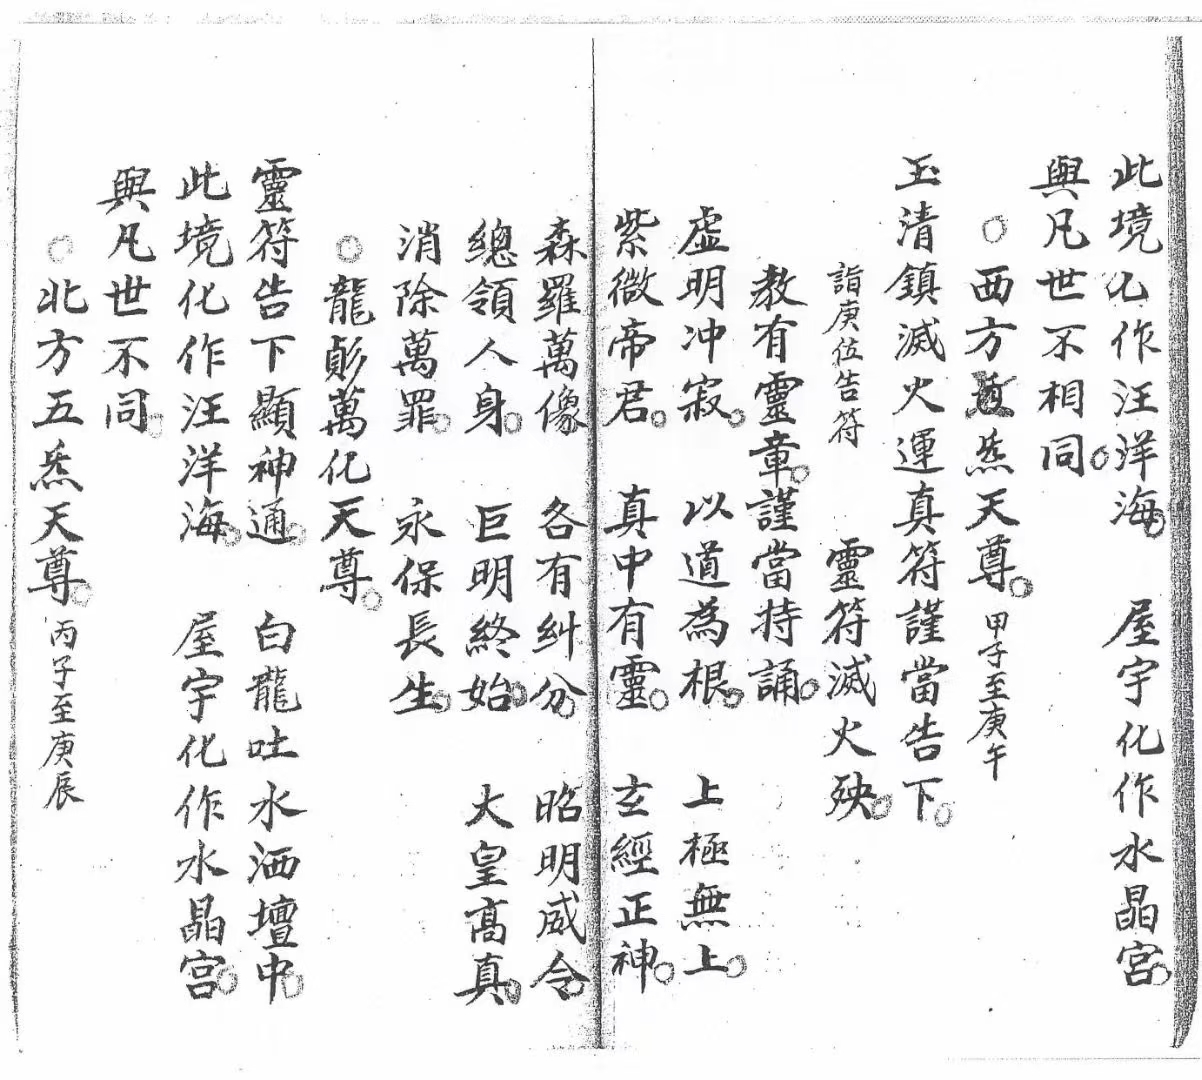 此境化作汪洋海。 屋宇化作水晶宫。
與凡世不相同。
○西方炁天尊。甲子至庚午
玉清鎮滅火運真符謹當告下。
詣庚位告符 靈符滅火殃。
教有靈章。謹當持誦。
虛明冲寂。 以道為根。 上極無上。
紫微帝君。 真中有靈。 玄經正神。
森羅萬像 各有糾分。 昭明威令。
總領人身。 巨明終始。 大皇高真。
消除萬罪。 永保長生。
○龍彰萬化天尊。
靈符告下顯神通。 白龍吐水洒壇中。
此境化作汪洋海。 屋宇化作水晶宫。
與凡世不同。
○北方五炁天尊。丙子至庚辰